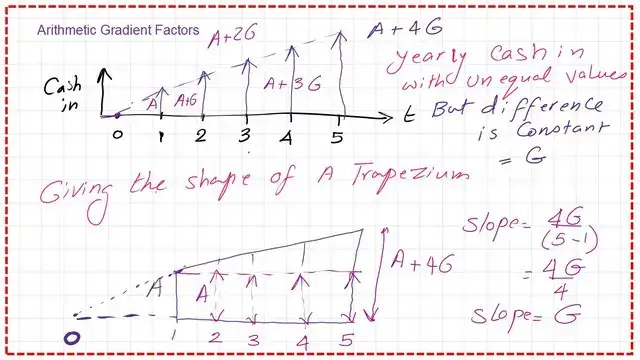 Arithmetic Gradient Factors
A+2G
A+4G
Cash
in
A
A+G
A+3G
0 1 2 3 4 5
t
yearly cash in
with unequal values
But difference
is constant
= G
Giving the shape of A Trapezium
A
A
A+4G
0 1 2 3 4 5
slope= 4G
(5-1)
= 4G
4
slope= G